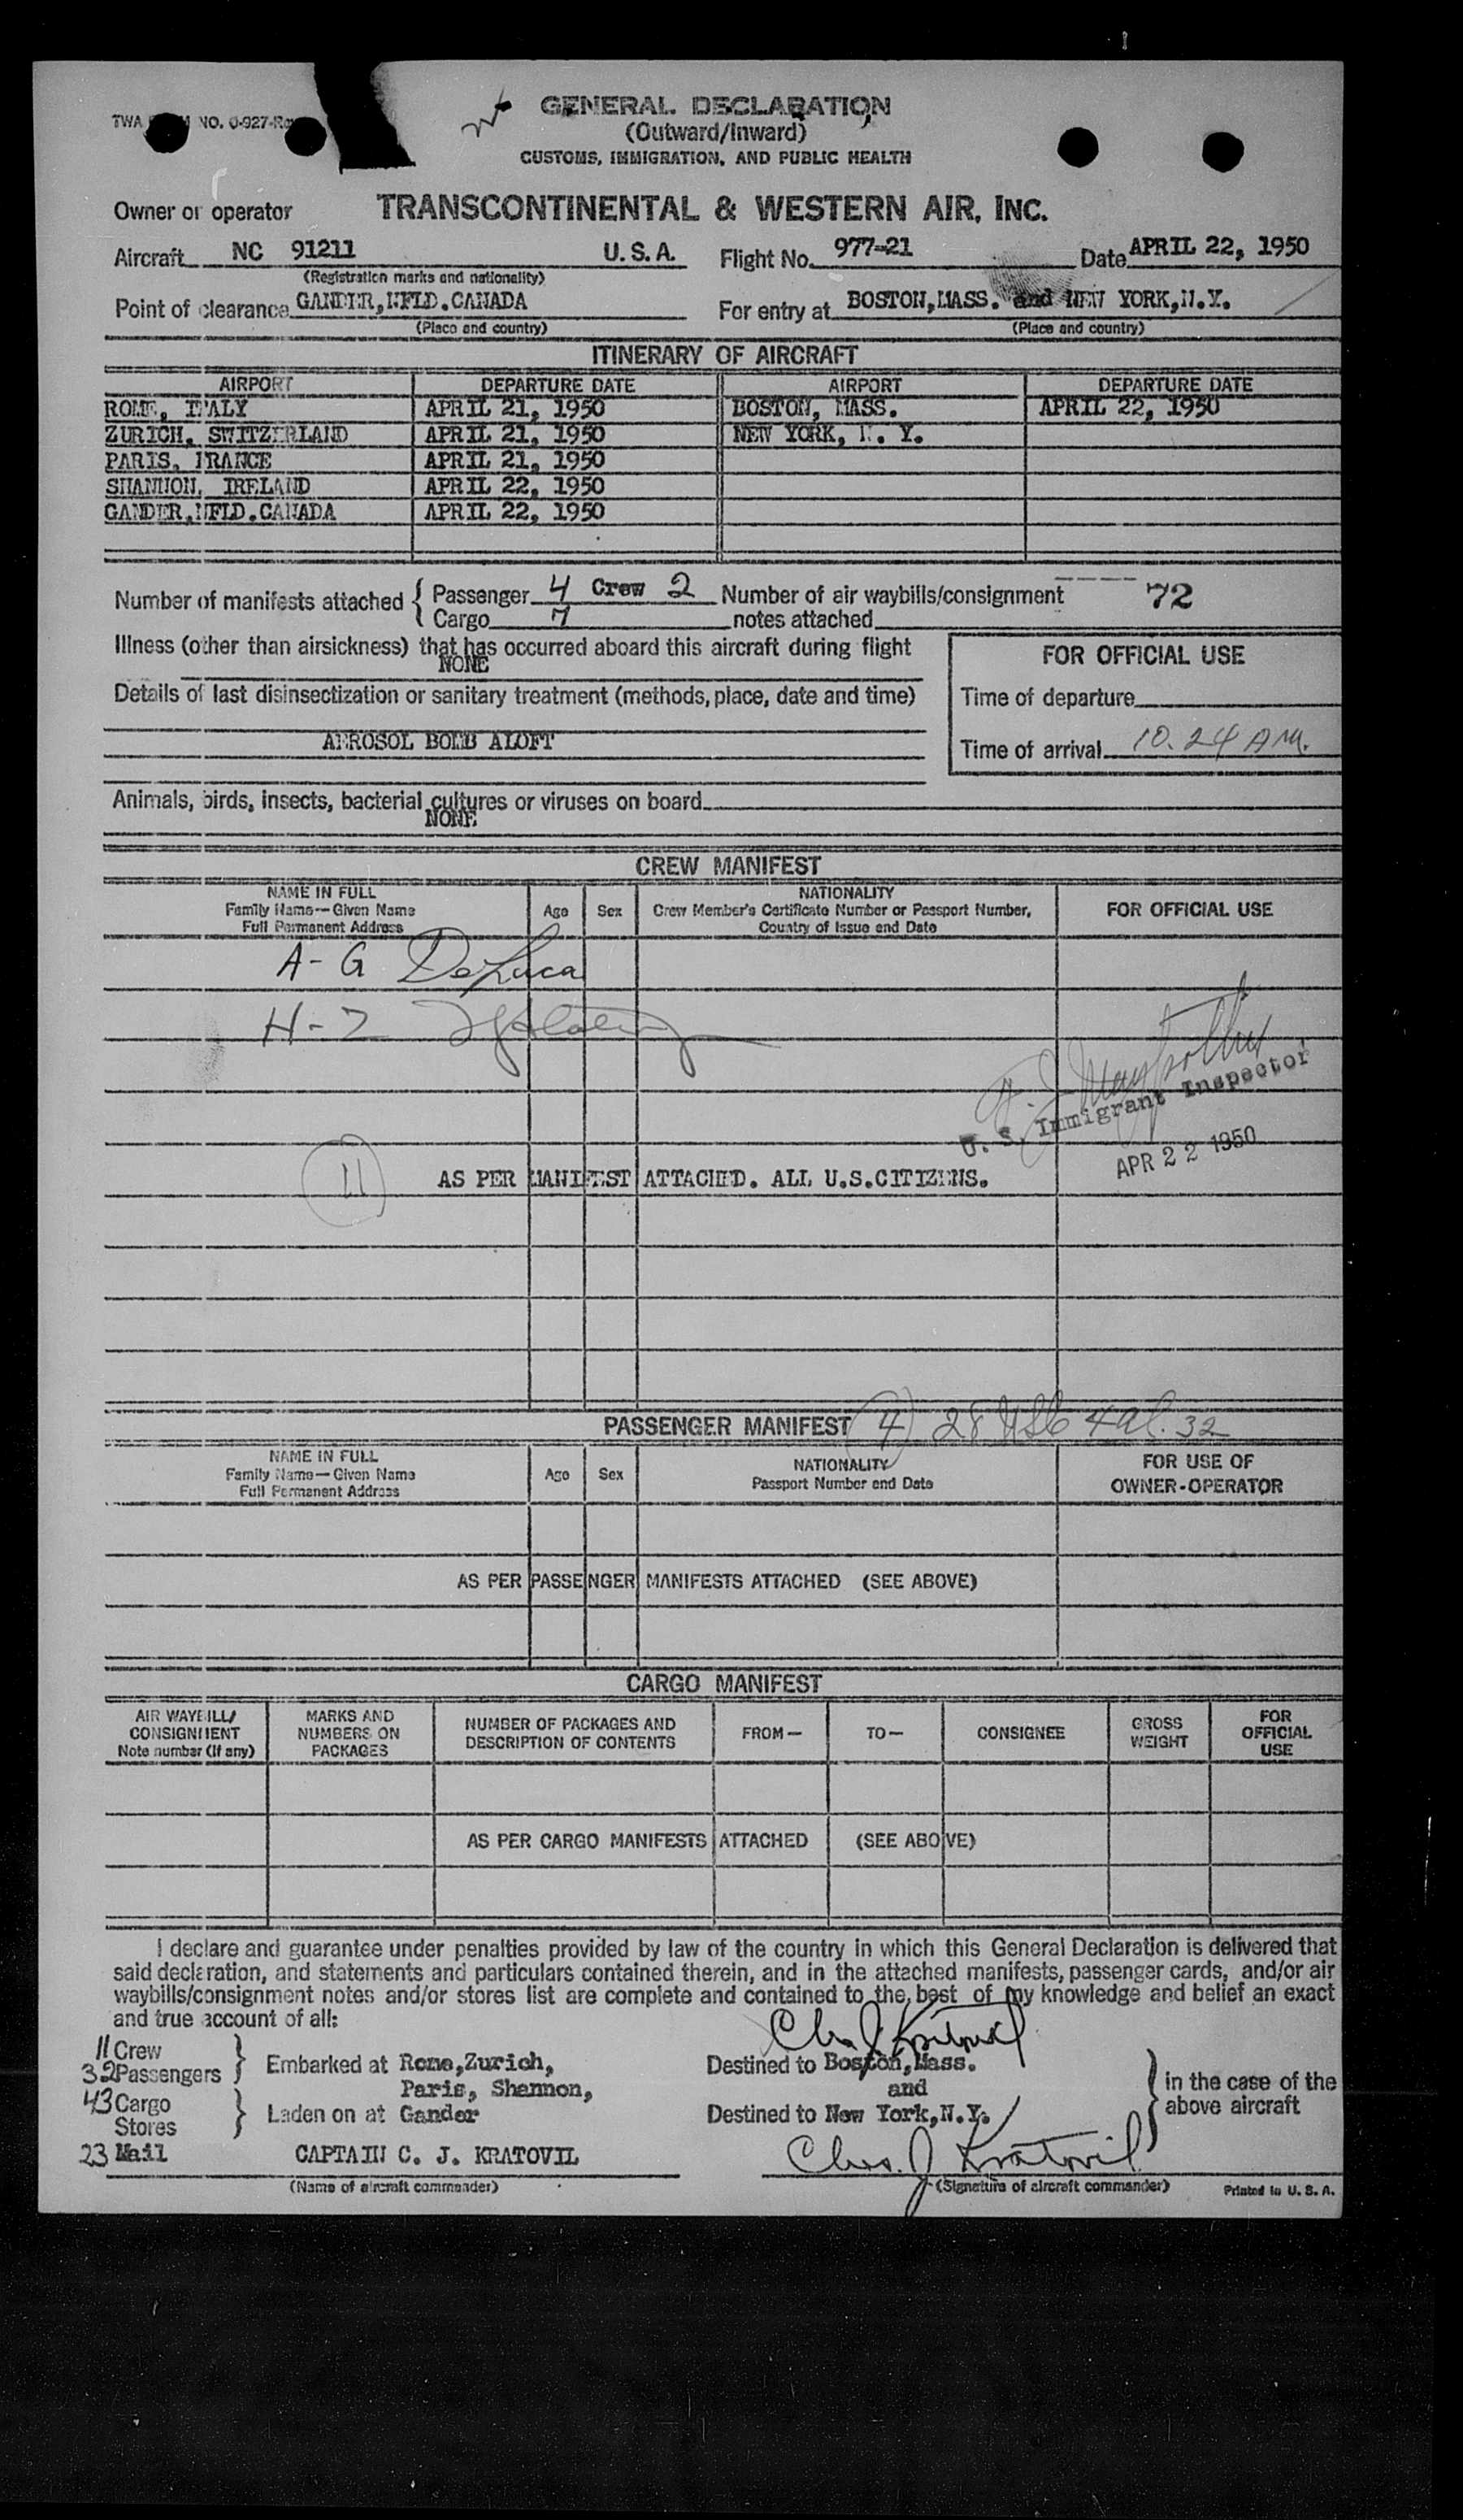 TWA NO. 0-927-Re
GENERAL DECLARATION
(Outward/Inward)
CUSTOMS, IMMIGRATION, AND PUBLIC HEALTH
Owner or operator TRANSCONTINENTAL & WESTERN AIR, INC.
Aircraft NC 91211 U. S. A. Flight No. 977-21 Date APRIL 22, 1950
(Registration marks and nationality)
Point of clearance GANDER,NFLD.CANADA For entry at BOSTON,MASS. and NEW YORK,N.Y.
(Place and country) (Place and country)
ITINERARY OF AIRCRAFT
AIRPORT DEPARTURE DATE AIRPORT DEPARTURE DATE
ROME, ITALY APRIL 21, 1950 BOSTON, MASS. APRIL 22, 1950
ZURICH, SWITZERLAND APRIL 21, 1950 NEW YORK, N. Y.
PARIS, FRANCE APRIL 21, 1950
SHANNON, IRELAND APRIL 22, 1950
GANDER,NFLD.CANADA APRIL 22, 1950
Number of manifests attached { Passenger 4 Crew 2 Number of air waybills/consignment 72
Cargo 7 notes attached
Illness (other than airsickness) that has occurred aboard this aircraft during flight
NONE
FOR OFFICIAL USE
Details of last disinsectization or sanitary treatment (methods, place, date and time)
Time of departure
AEROSOL BOMB ALOFT
Time of arrival 10.24 AM.
Animals, birds, insects, bacterial cultures or viruses on board
NONE
CREW MANIFEST
NAME IN FULL
Family Name—Given Name
Full Permanent Address
Age Sex
NATIONALITY
Crew Member's Certificate Number or Passport Number,
Country of Issue and Date
FOR OFFICIAL USE
A-G DeLuca
H-Z
U. S. Immigrant Inspector
APR 22 1950
11 AS PER MANIFEST ATTACHED. ALL U.S.CITIZENS.
PASSENGER MANIFEST (4) 28 USC 4 al. 32
NAME IN FULL
Family Name—Given Name
Full Permanent Address
Age Sex
NATIONALITY
Passport Number and Date
FOR USE OF
OWNER-OPERATOR
AS PER PASSENGER MANIFESTS ATTACHED (SEE ABOVE)
CARGO MANIFEST
AIR WAYBILL/
CONSIGNMENT
Note number (if any)
MARKS AND
NUMBERS ON
PACKAGES
NUMBER OF PACKAGES AND
DESCRIPTION OF CONTENTS
FROM—
TO—
CONSIGNEE
GROSS
WEIGHT
FOR
OFFICIAL
USE
AS PER CARGO MANIFESTS ATTACHED (SEE ABOVE)
I declare and guarantee under penalties provided by law of the country in which this General Declaration is delivered that
said declaration, and statements and particulars contained therein, and in the attached manifests, passenger cards, and/or air
waybills/consignment notes and/or stores list are complete and contained to the best of my knowledge and belief an exact
and true account of all:
Chas J Kratovil
11 Crew
32 Passengers } Embarked at Rome, Zurich, Destined to Boston, Mass.
Paris, Shannon, and
43 Cargo
Stores } Laden on at Gander Destined to New York, N.Y.
} in the case of the
above aircraft
23 Mail CAPTAIN C. J. KRATOVIL Chas. J Kratovil
(Name of aircraft commander) (Signature of aircraft commander) Printed in U. S. A.